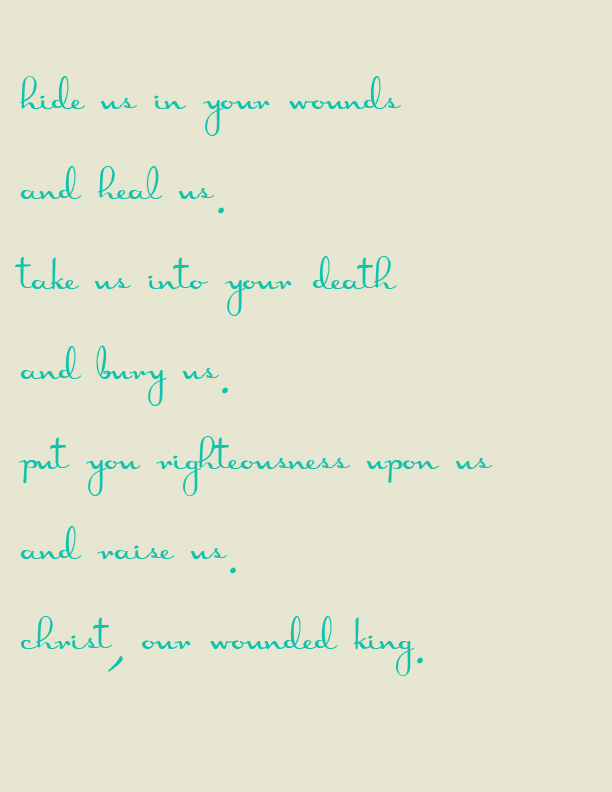 hide us in your wounds
and heal us.
take us into your death
and bury us.
put you righteousness upon us
and raise us.
christ, our wounded king.